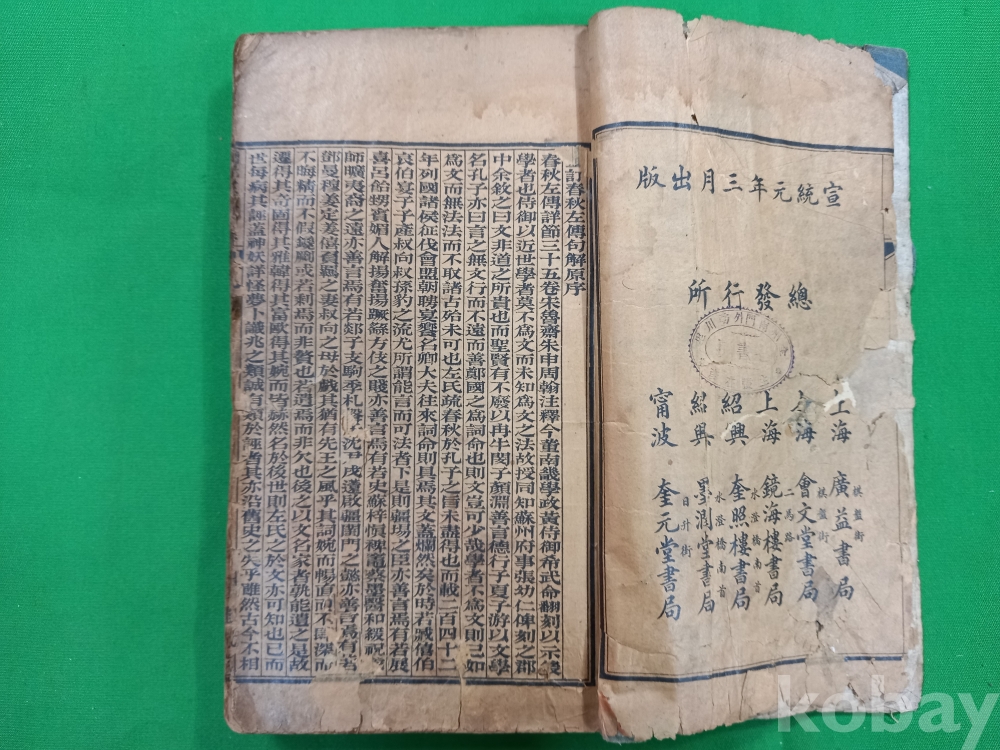 宣統元年三月出版
總發行所
上海 棋盤街 廣益書局
上海 棋盤街 會文堂書局
上海 二馬路 鏡海樓書局
紹興 水澄橋南首 奎照樓書局
紹興 水澄橋南首 墨潤堂書局
甯波 日升街 奎元堂書局
訂春秋左傳句解原序
春秋左傳詳節三十五卷宋魯齋朱申周翰注釋今董南畿學政黃侍御希武命翻刻以示後
學者也侍御以近世學者莫不爲文而未知爲文之法故授同知蘇州府事張幼仁俾刻之郡
中余敘之曰文非道之所貴也而聖賢有不廢以冉牛閔子顏淵善言德行子夏子游以文學
名孔子亦曰言之無文行而不遠而善鄭國之爲詞命也則文豈可少哉學者不爲文則已如
爲文而無法法而不取諸古殆未可也左氏疏春秋於孔子之旨未盡得也而載二百四十二
年列國諸侯征伐會盟朝聘宴饗名卿大夫往來詞命則具焉其文蓋爛然矣於時若臧僖伯
哀伯晏子子產叔向叔孫豹之流尤所謂能言而可法者下是則疆場之臣亦善言焉有若展
喜呂飴甥賓媚人解揚奮揚蹶繇方伎之賤亦善言焉有若史蘇梓慎裨竈蔡墨醫和緩祝
師曠夷裔之遠亦善言焉有若郯子支駒季札 沈 戌遠啟疆閨門之懿亦善言焉有若
鄧曼穆姜定姜僖負羈之妻叔向之母於戲其猶有先王之風乎其詞婉而暢直而不 深而
不晦精而不假 或若剩焉而非贅也若遺焉而非欠也後之以文名家者孰能遺之是故
遷得其奇固得其雅韓得其富歐得其婉而皆赫然名於後世則左氏之於文亦可知也已而
世每病其誣蓋神妖詳怪夢卜讖兆之類誠有 於誣者其亦沿舊史之失乎雖然古今不相
kobay